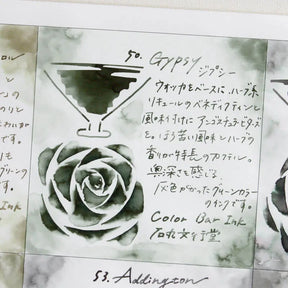 50. Gypsy
ジプシー
ウォッカをベースに、ハーブ系
リキュールのベネディクティンと
風味付けた アンゴスチュラ・ビターズ
を。ほろ苦い風味とハーブの
香りが特長のカクテル。
奥深さを感じる
灰色がかったグリーンカラー
のインクです。
Color Bar Ink
石丸文行堂
53. Addington
です。
Ink